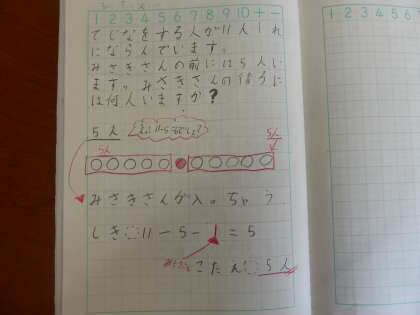 1 2 3 4 5 6 7 8 9 10 + −
てじなをする人が11人1れ
にならんでいます。
みさきさんの前には5人い
ます。みさきさんの後ろに
は何人いますか?
5人
5人
5人
みさきさんが入っちゃう
しき 11−5−1=5
みさきさん
こたえ 5人
1 2 3 4 5 6 7